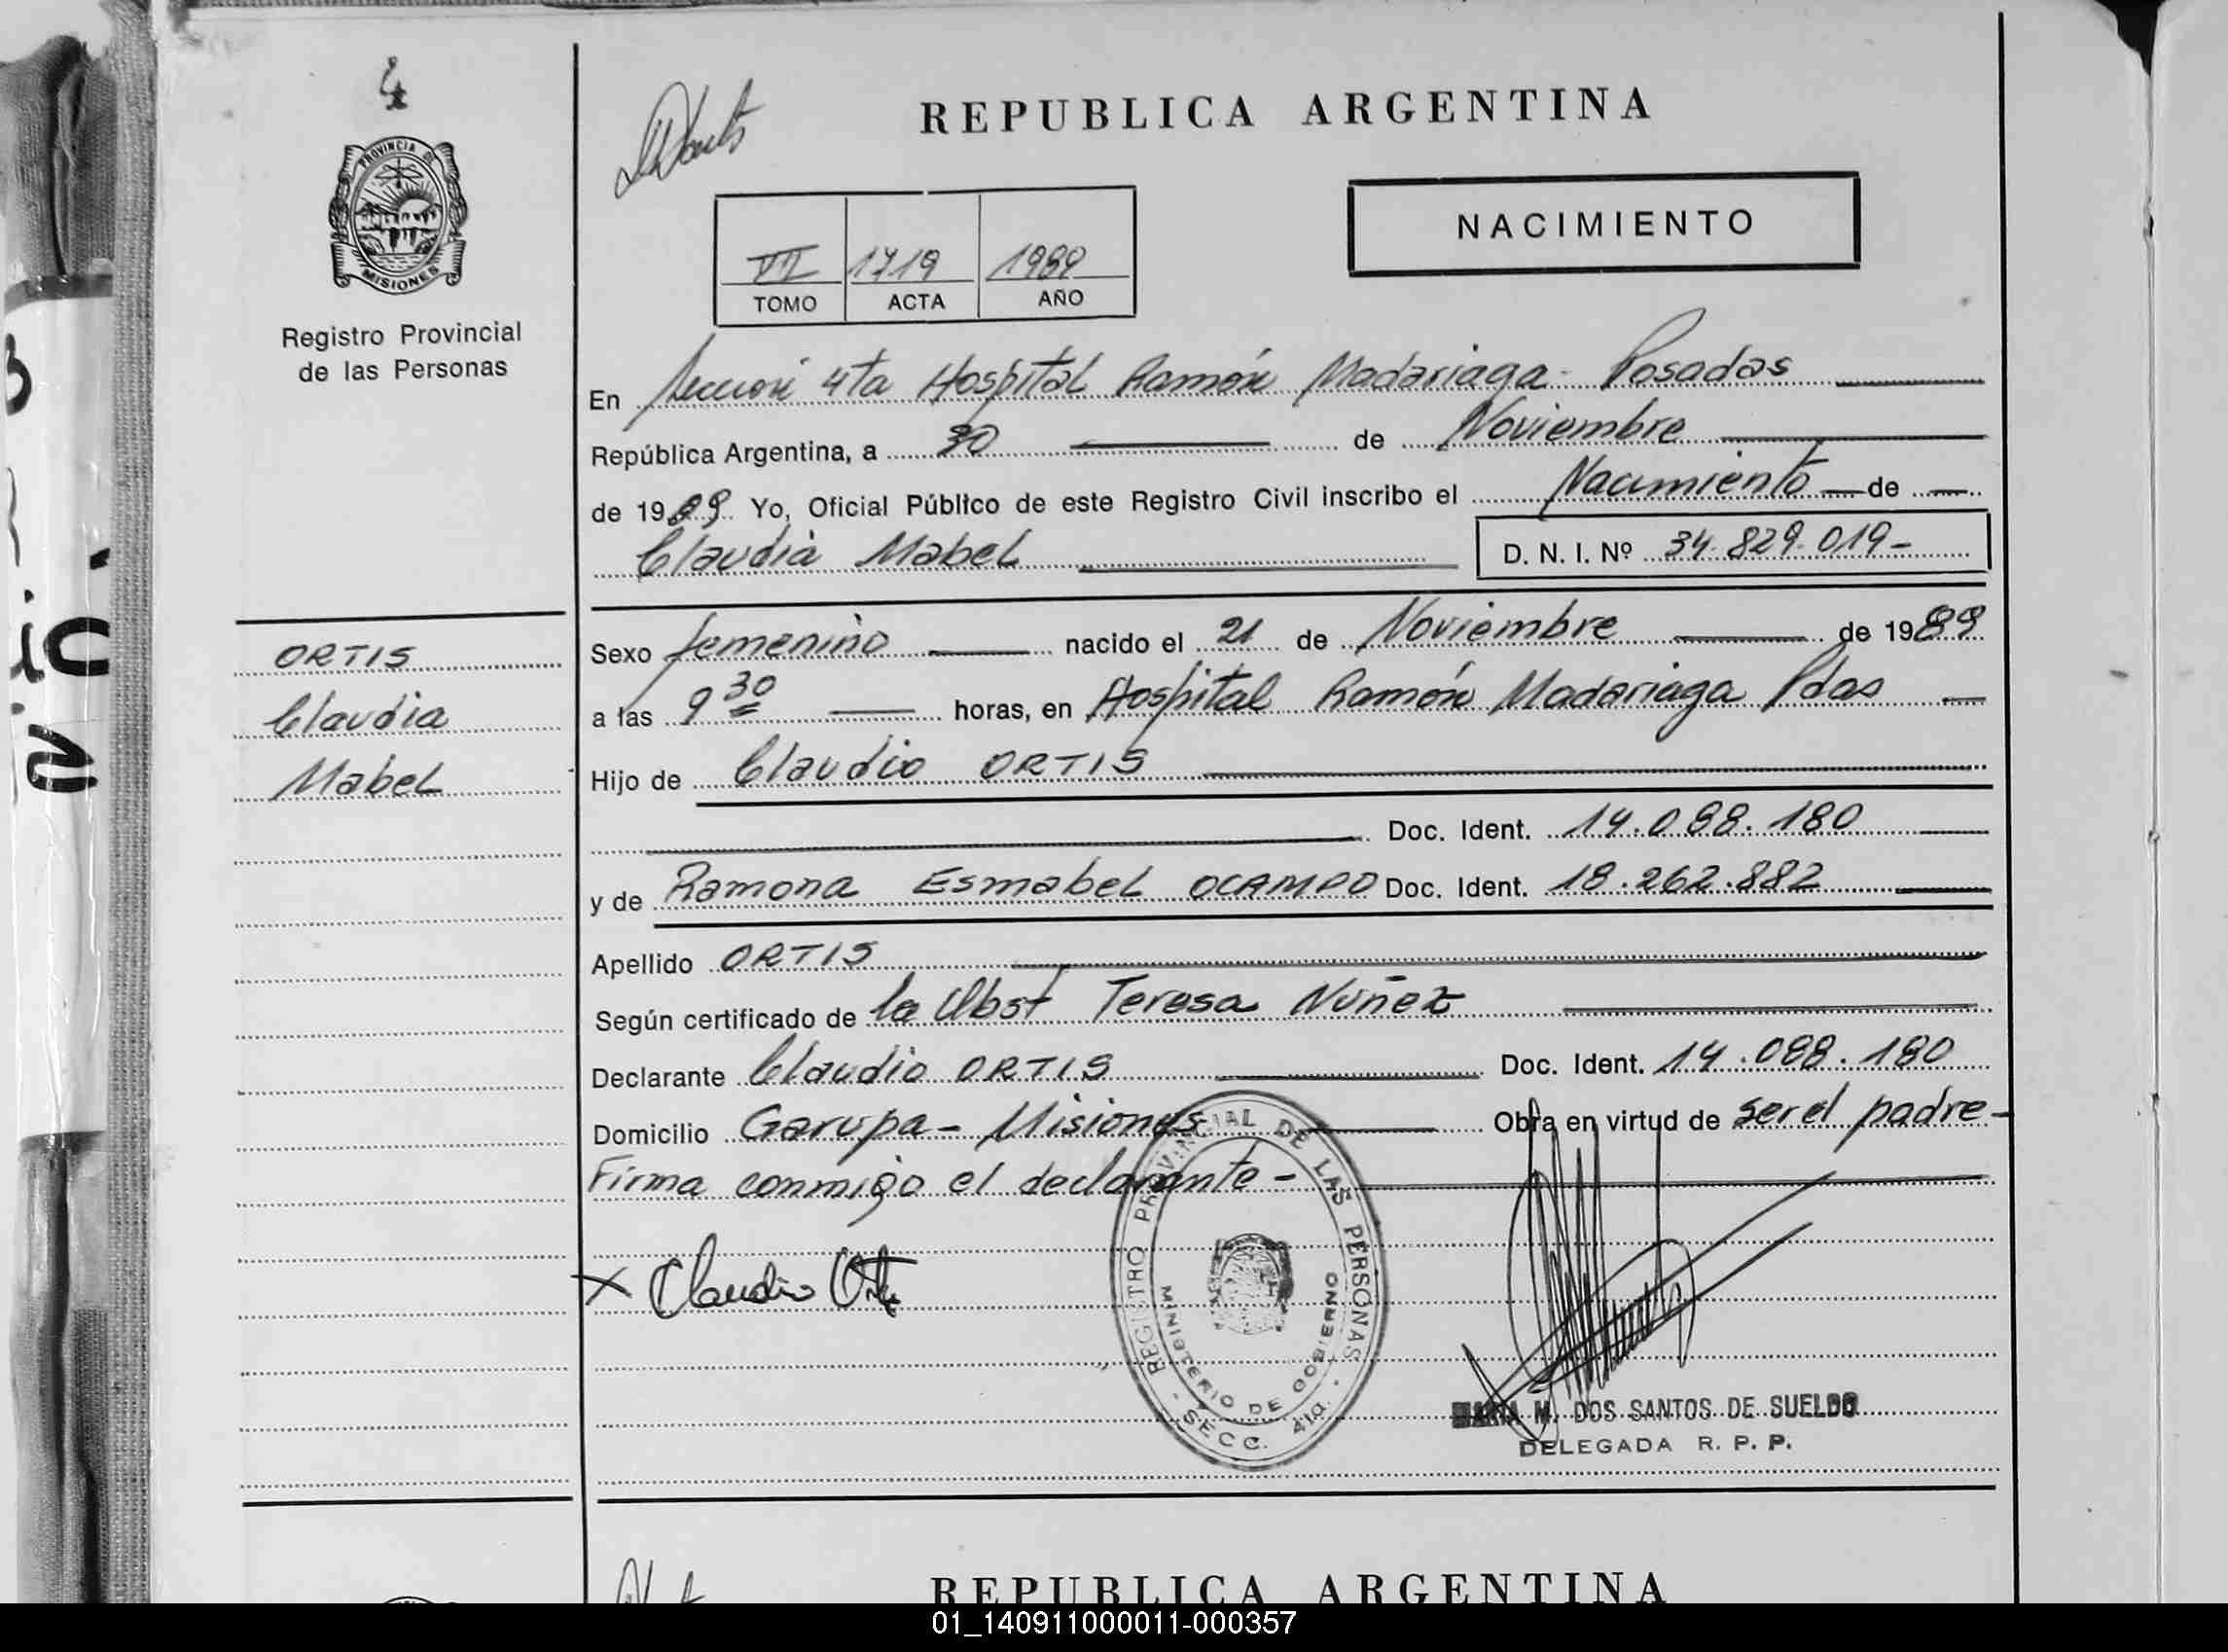 4
PROVINCIA DE
MISIONES
Registro Provincial
de las Personas
ORTIS
Claudia
Mabel
REPUBLICA ARGENTINA
NACIMIENTO
VII 1719 1989
TOMO ACTA AÑO
En Sección 4ta Hospital Ramón Madariaga - Posadas
República Argentina, a 30 de Noviembre
de 1989 Yo, Oficial Público de este Registro Civil inscribo el Nacimiento de
Claudia Mabel D. N. I. Nº 34.829.019-
Sexo femenino nacido el 21 de Noviembre de 1989
a las 9 30 horas, en Hospital Ramón Madariaga Pdas
Hijo de Claudio ORTIS
Doc. Ident. 14.088.180
y de Ramona Esmabel OCAMPO Doc. Ident. 18.262.882
Apellido ORTIS
Según certificado de la Obst Teresa Nuñez
Declarante Claudio ORTIS Doc. Ident. 14.088.180
Domicilio Garupa - Misiones Obra en virtud de ser el padre-
Firma conmigo el declarante-
X Claudio Ortis
REGISTRO PROVINCIAL DE LAS PERSONAS
MINISTERIO DE GOBIERNO
SECC. 4ta.
MARIA M. DOS SANTOS DE SUELDO
DELEGADA R. P. P.
REPUBLICA ARGENTINA
01_140911000011-000357